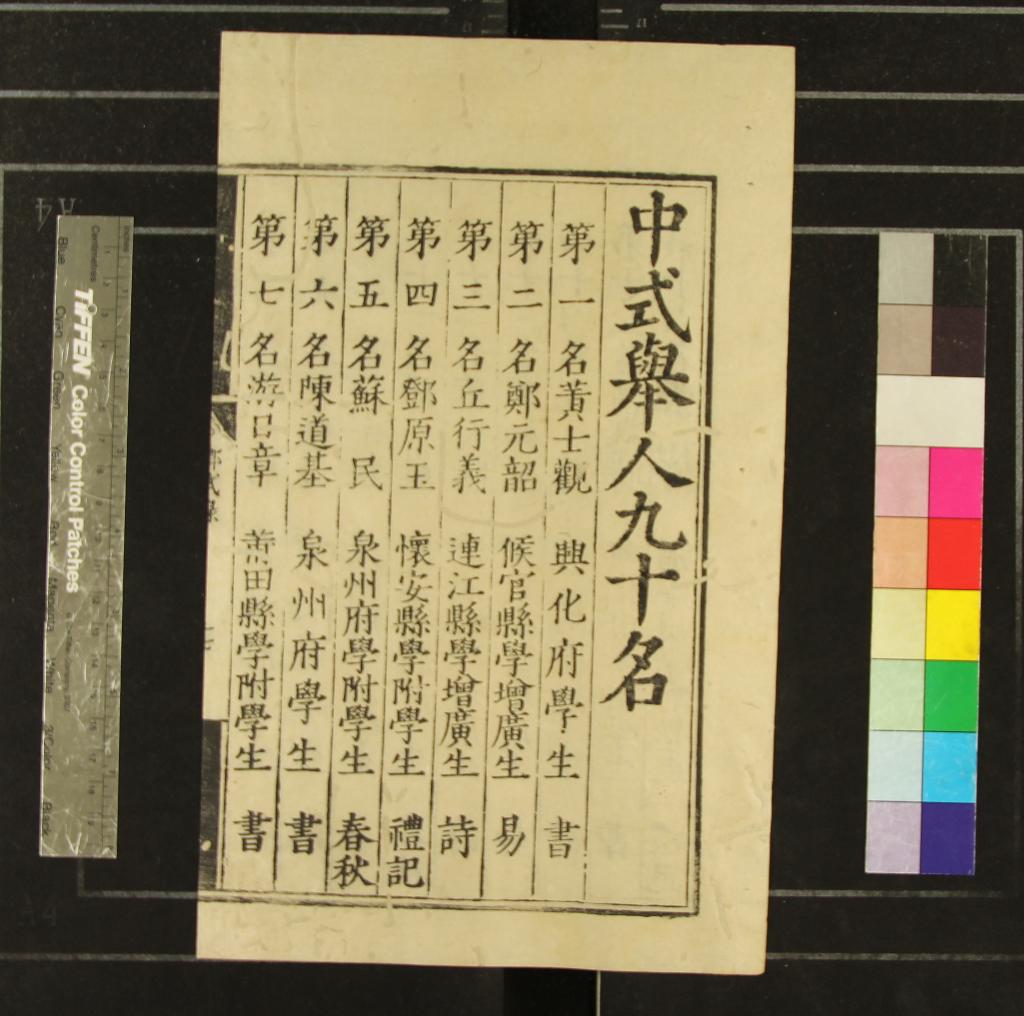 中式舉人九十名
第一名黃士觀 興化府學生 書
第二名鄭元韶 候官縣學增廣生 易
第三名丘行義 連江縣學增廣生 詩
第四名鄧原玉 懷安縣學附學生 禮記
第五名蘇民 泉州府學附學生 春秋
第六名陳道基 泉州府學生 書
第七名游日章 莆田縣學附學生 書
TIFFEN Color Control Patches
Blue Cyan Green Yellow Red Magenta White 3/Color Black
Centimetres
Inches
A4
A4